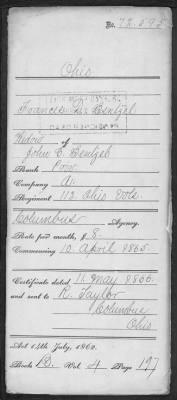 No. 72.595
Ohio
Frances M. Bentzel
Widow of
John C. Bentzel
Rank Priv.
Company A.
Regiment 112 Ohio Vols.
Columbus Agency.
Rate per month, $ 8
Commencing 10 April 1865.
Certificate dated 11 May 1866.
and sent to R. Taylor
Columbus
Ohio
Act 14th July, 1862.
Book D. Vol. 4 Page 197